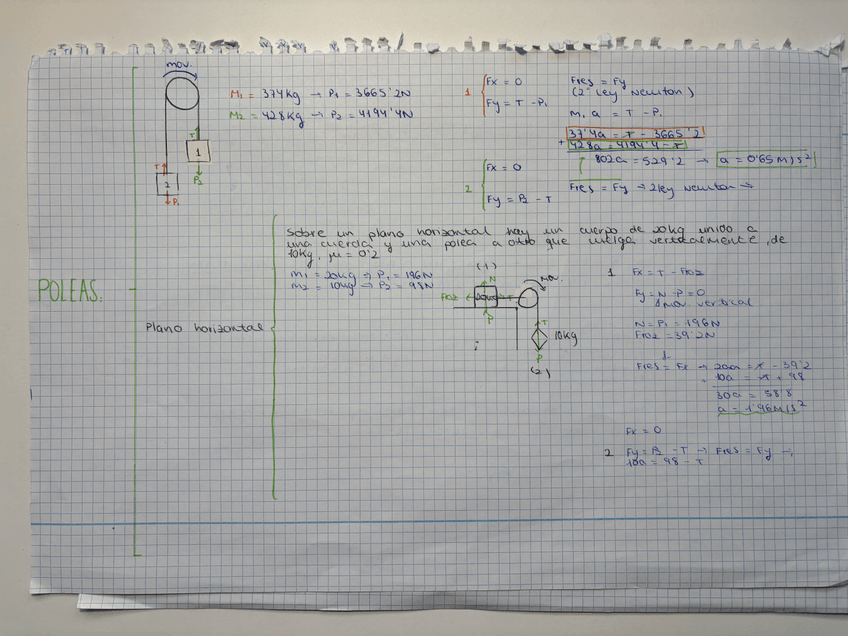 POLEAS.
mov.
T
1
P2
T
2
P1
M1 = 374Kg → P1 = 3665'2N
M2 = 428Kg → P2 = 4194'4N
1
Fx = 0
Fy = T - P1
Fres = Fy
(2ª ley Newton)
M1 a = T - P1
37'4a = T - 3665'2
+ 428a = 4194'4 - T
802a = 529'2 → a = 0'65 m/s²
2
Fx = 0
Fy = P2 - T
Fres = Fy → 2 ley Newton →
Plano horizontal
Sobre un plano horizontal hay un cuerpo de 20kg unido a
una cuerda y una polea a otro que cuelga verticalmente, de
10kg, μ = 0'2
m1 = 20kg → P1 = 196N
m2 = 10kg → P2 = 98N
(1)
N
mov.
FROZ
20kg
T
P
T
10kg
P
(2)
1
Fx = T - FROZ
Fy = N - P = 0
mov. vertical
N = P1 = 196N
FROZ = 39'2N
Fres = Fx → 20a = T - 39'2
10a = -T + 98
30a = 58'8
a = 1'96 m/s²
Fx = 0
2 Fy = P2 - T → Fres = Fy →
10a = 98 - T